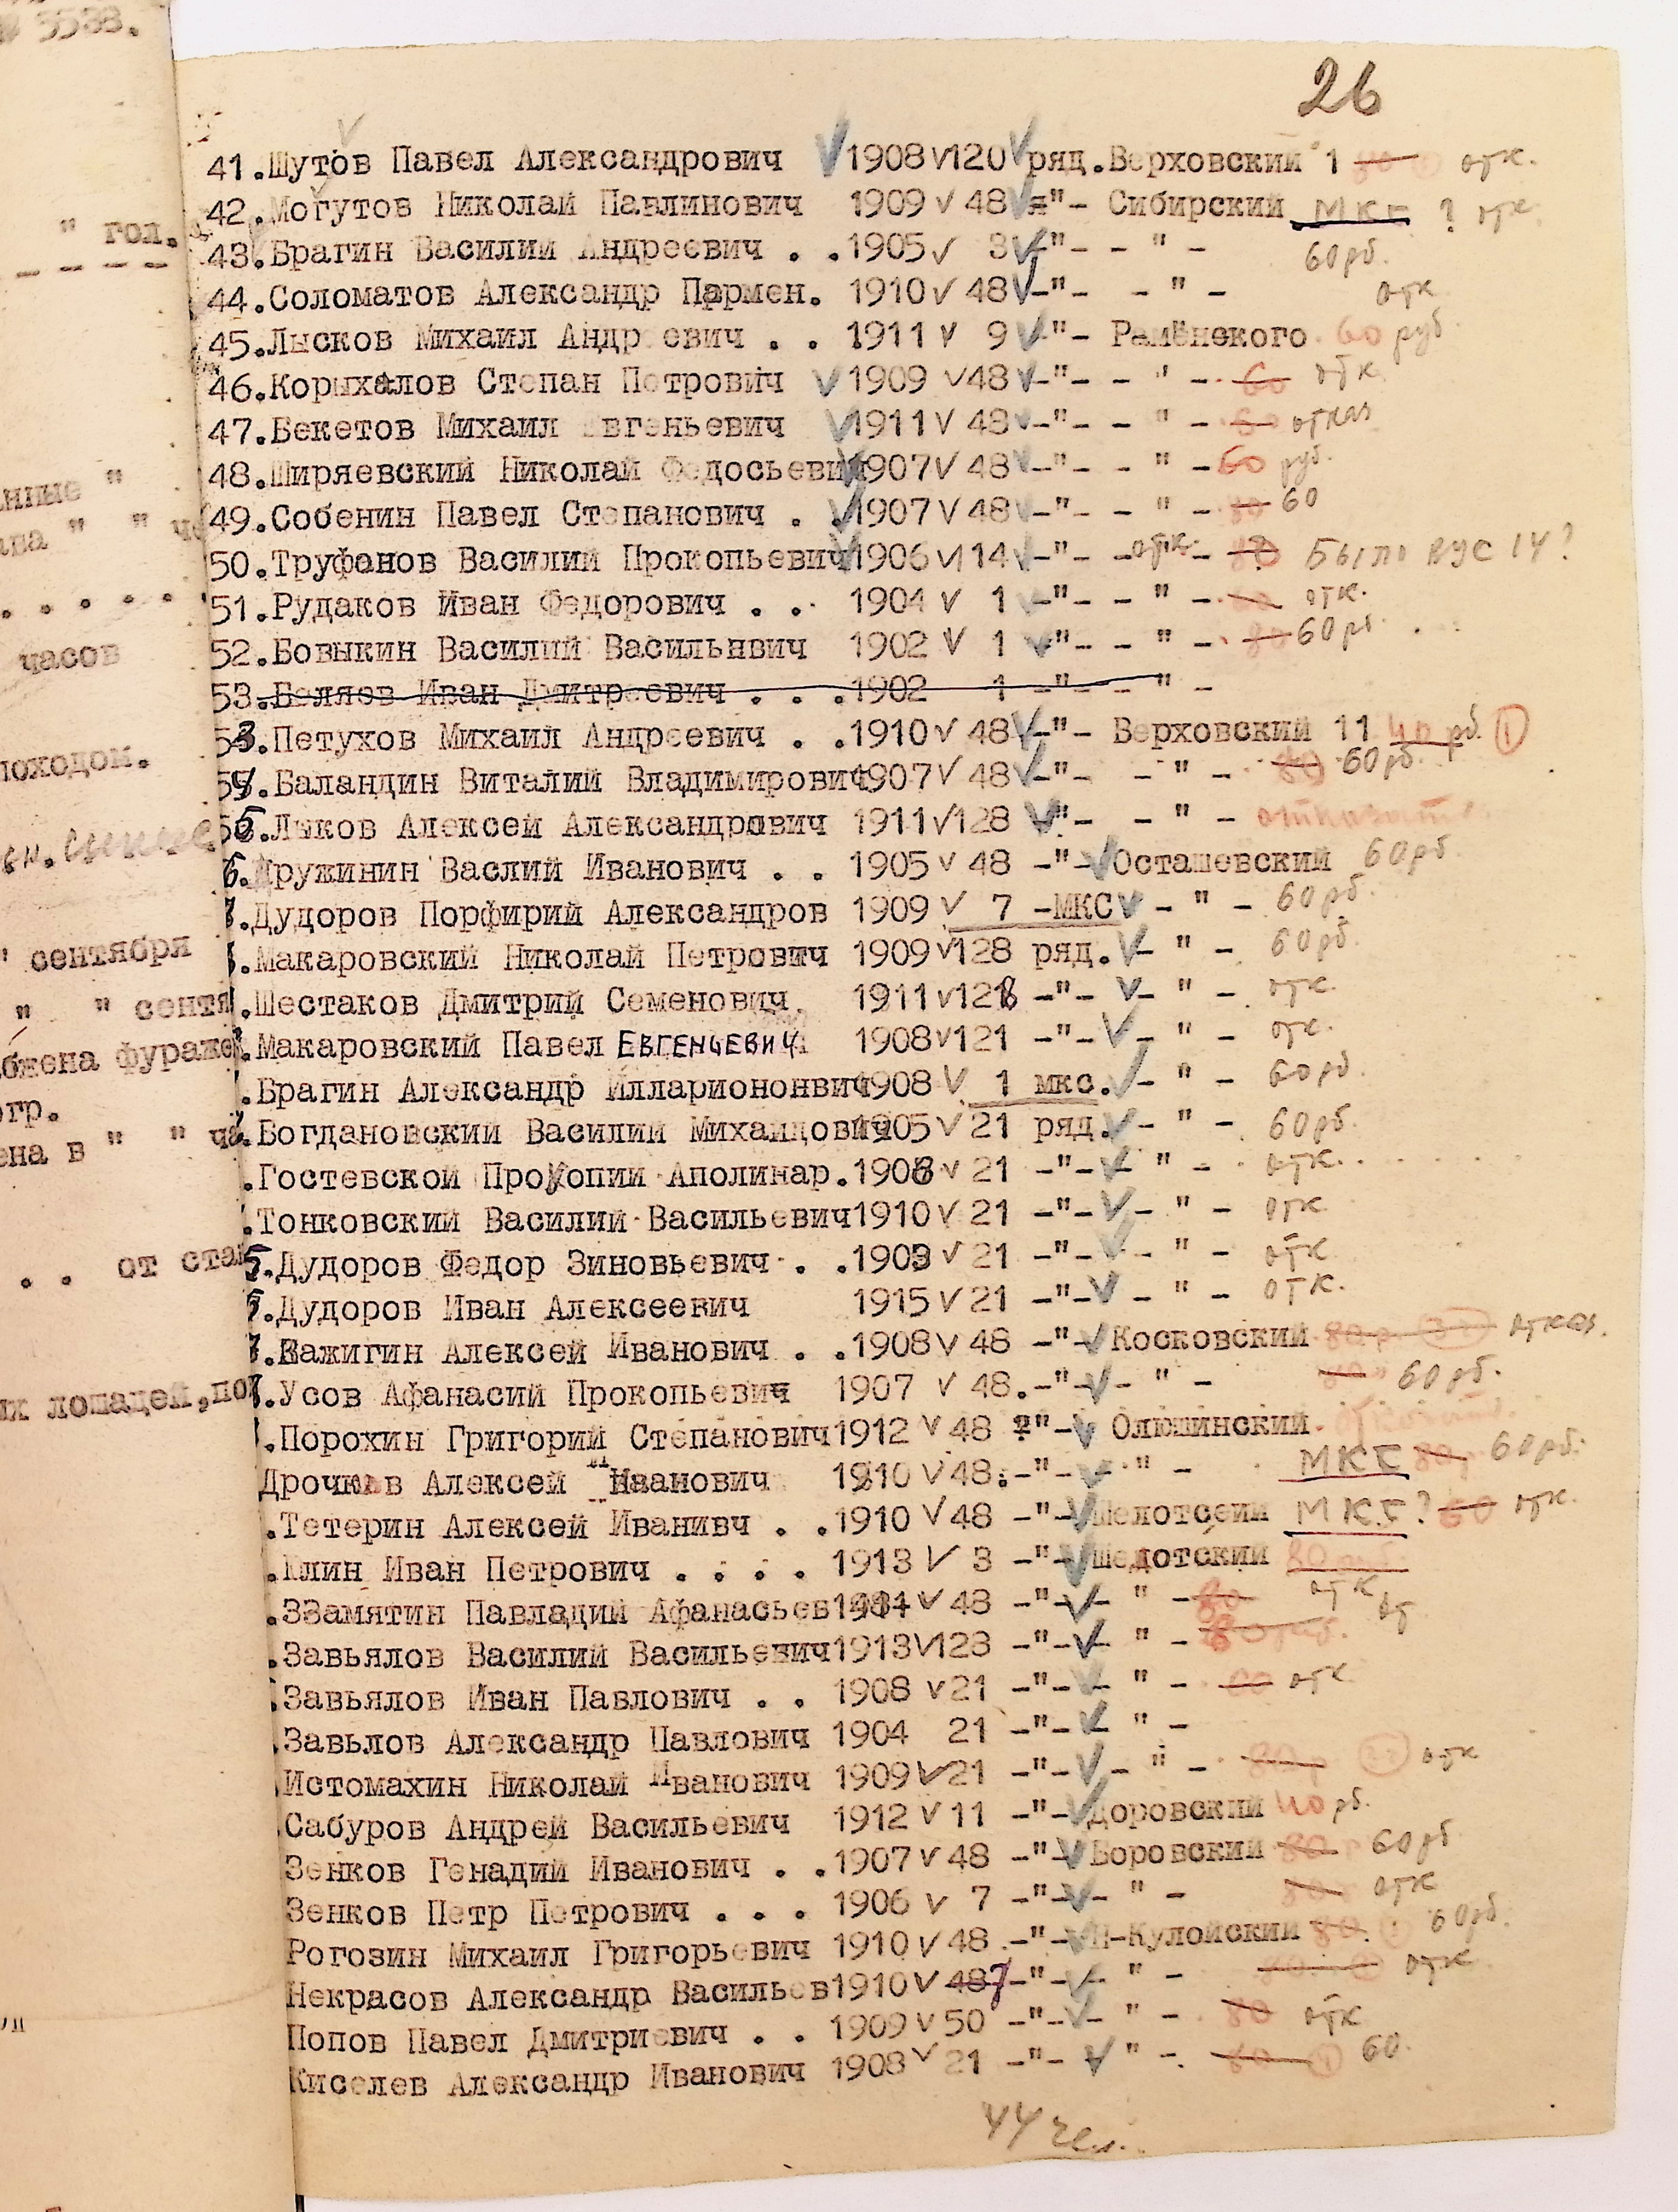 26
41.Шутов Павел Александрович 1908 120 ряд.Верховский 1 80 отк.
42.Могутов Николай Павлинович 1909 48 -"- Сибирский МКС ? отк.
43.Брагин Василий Андреевич . . 1905 3 -"- - " - 60 рб.
44.Соломатов Александр Пармен. 1910 48 -"- - " - отк
45.Лысков Михаил Андр евич . . 1911 9 -"- Раменского 60 руб
46.Корыхалов Степан Петрович 1909 48 -"- - " - 60 отк
47.Бекетов Михаил Евгеньевич 1911 48 -"- - " - 60 отказ
48.Ширяевский Николай Федосьевич 1907 48 -"- - " - 60 руб.
49.Собенин Павел Степанович . . 1907 48 -"- - " - 80 60
50.Труфанов Василий Прокопьевич 1906 114 -"- - " - отк 80 Было ВУС 14?
51.Рудаков Иван Федорович . . 1904 1 -"- - " - 80 отк.
52.Бовыкин Василий Васильнвич 1902 1 -"- - " - 80 60 рб
53.Беляев Иван Дмитреевич . . .1902 1 -"- - " -
53.Петухов Михаил Андреевич . .1910 48 -"- Верховский 11 40 рб. 1
54.Баландин Виталий Владимирович 1907 48 -"- - " - 80 60 рб.
55.Лыков Алексей Александрович 1911 128 -"- - " - отказать
6.Дружинин Васлий Иванович . . 1905 48 -"- Осташевский 60 рб.
7.Дудоров Порфирий Александров 1909 7 -МКС - " - 60 рб.
.Макаровский Николай Петрович 1909 128 ряд. - " - 60 рб.
.Шестаков Дмитрий Семенович. 1911 128 -"- - " - отк.
.Макаровский Павел ЕВГЕНЬЕВИЧ 1908 121 -"- - " - отк.
.Брагин Александр Иллариононвич 1908 1 мкс. - " - 60 рб.
.Богдановский Василий Михаидович 1905 21 ряд. - " - 60 рб.
.Гостевской Прокопий Аполинар.1908 21 -"- " - отк.
.Тонковский Василий Васильевич 1910 21 -"- - " - отк
5.Дудоров Федор Зиновьевич . .1903 21 -"- - " - отк
.Дудоров Иван Алексеевич 1915 21 -"- - " - отк.
.Важигин Алексей Иванович . .1908 48 -"- Косковский 80 р отказ.
.Усов Афанасий Прокопьевич 1907 48.-"- - " - 80 60 рб.
.Порохин Григорий Степанович 1912 48 -"- Олюшинский
Дрочков Алексей Иванович 1910 48.-"- - " - МКС 80 60 рб.
.Тетерин Алексей Иванивч . .1910 48 -"- Шелотсеий МКС? 60 отк.
.Клин Иван Петрович . . . . 1913 3 -"- Шедотский 80 руб.
.ЗЗамятин Павладий Афанасьев 48 -"- " - 80 отк
.Завьялов Василий Васильевич 1913 123 -"- " - 80 руб. от
.Завьялов Иван Павлович . . 1908 21 -"- " - 80 отк
.Завьлов Александр Павлович 1904 21 -"- " -
.Истомахин Николай Иванович 1909 21 -"- - " - 80р отк
Сабуров Андрей Васильевич 1912 11 -"- доровский 40 рб.
Зенков Генадий Иванович . .1907 48 -"- Боровский 80 60 рб
Зенков Петр Петрович . . . 1906 7 -"- - " - 80 отк
Рогозин Михаил Григорьевич 1910 48 .-"- Н-Кулойский 80 60 рб.
Некрасов Александр Васильев 1910 48 7 -"- " - 80 отк
Попов Павел Дмитриевич . . 1909 50 -"- " - 80 отк
Киселев Александр Иванович 1908 21 -"- " -. 80 60.
44 чел.
№ 3538.
" гол.
анные "
ава " " ча
. . . . . .
часов
походом.
" сентября
" " сентя
бжена фураже
огр.
ена в " " ча
. . от ста
ых лошадей,по